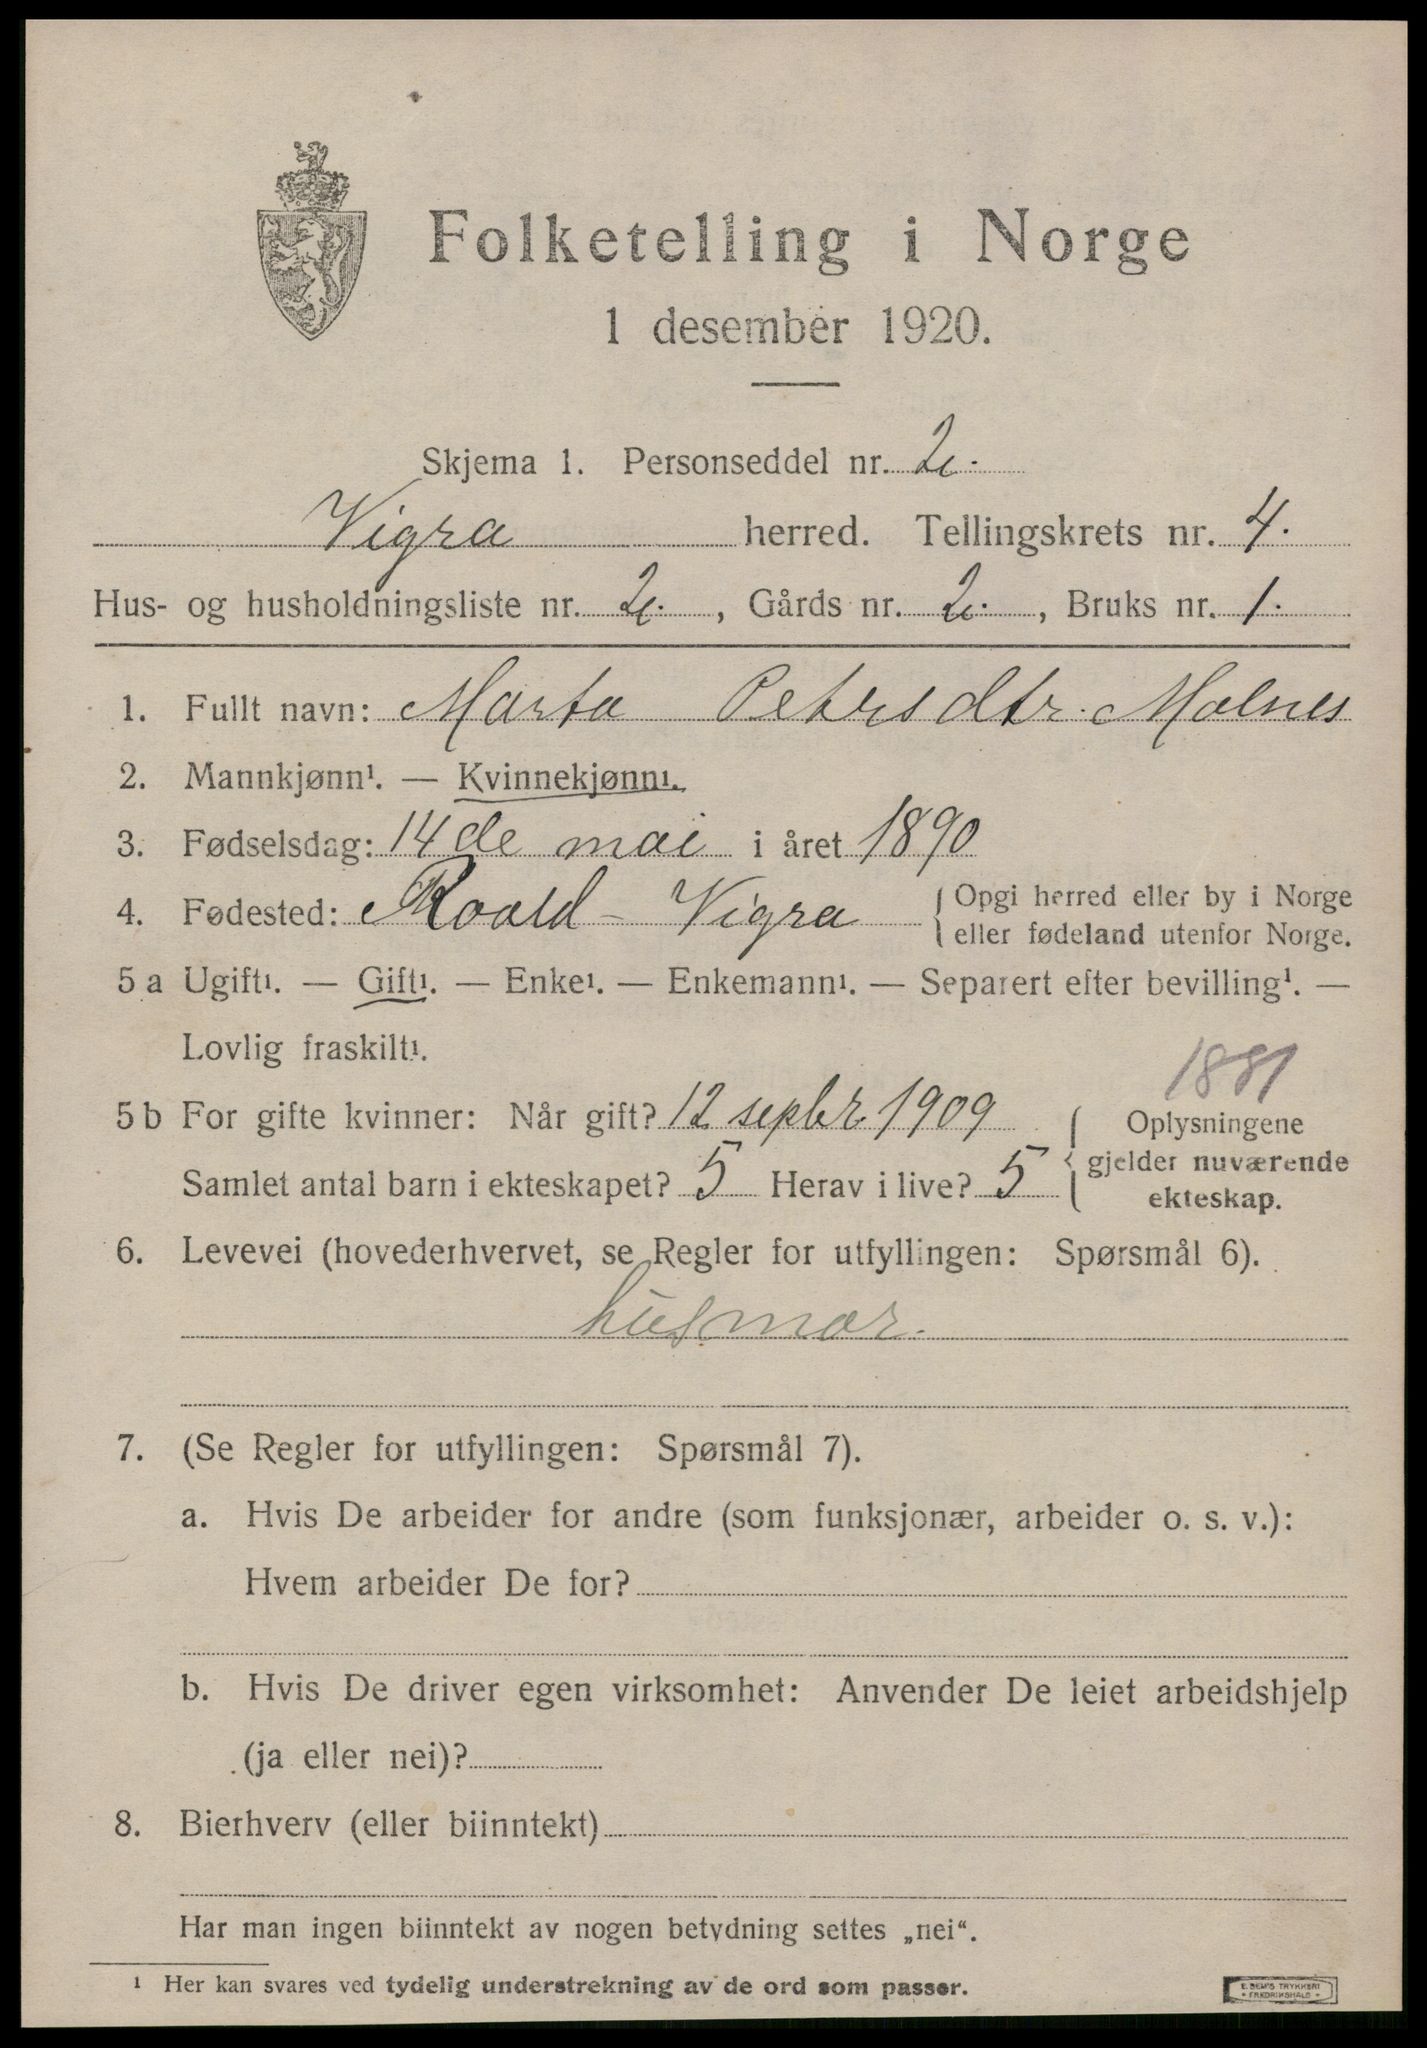 Folketelling i Norge
1 desember 1920.
Skjema 1. Personseddel nr. 2.
Vigra herred. Tellingskrets nr. 4.
Hus- og husholdningsliste nr. 2. , Gårds nr. 2. , Bruks nr. 1.
1. Fullt navn: Marta Petersdtr. Molnes
2. Mannkjønn¹. — Kvinnekjønn¹.
3. Fødselsdag: 14de mai i året 1890
4. Fødested: Roald - Vigra { Opgi herred eller by i Norge
eller fødeland utenfor Norge.
5 a Ugift¹. — Gift¹. — Enke¹. — Enkemann¹. — Separert efter bevilling¹. —
Lovlig fraskilt¹.
1881
5 b For gifte kvinner: Når gift? 12 sepbr. 1909 { Oplysningene
gjelder nuværende
Samlet antal barn i ekteskapet? 5 Herav i live? 5
ekteskap.
6. Levevei (hovederhvervet, se Regler for utfyllingen: Spørsmål 6).
husmor.
7. (Se Regler for utfyllingen: Spørsmål 7).
a. Hvis De arbeider for andre (som funksjonær, arbeider o. s. v.):
Hvem arbeider De for?
b. Hvis De driver egen virksomhet: Anvender De leiet arbeidshjelp
(ja eller nei)?
8. Bierhverv (eller biinntekt)
Har man ingen biinntekt av nogen betydning settes „nei“.
¹ Her kan svares ved tydelig understrekning av de ord som passer.
E. SEM'S TRYKKERI
• FREDRIKSHALD •